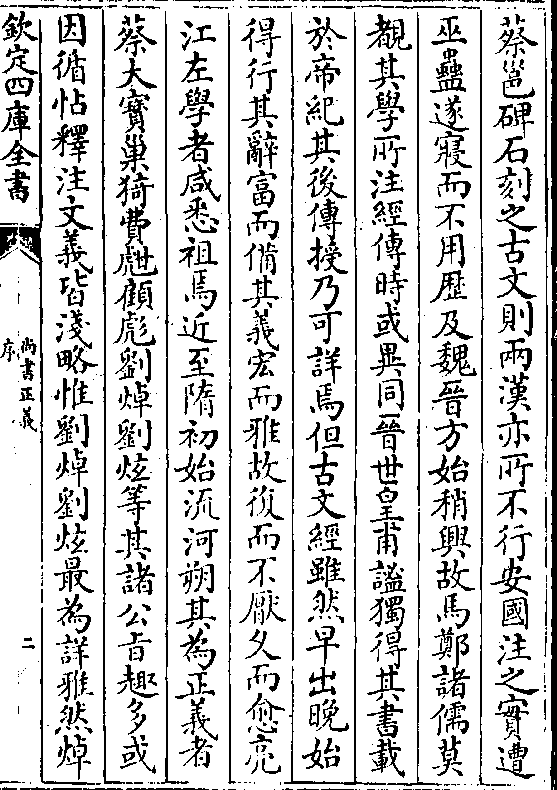 蔡邕碑石刻之古文則兩漢亦所不行安國注之實遭
巫蠱遂寢而不用歴及魏晉方始稍興故馬鄭諸儒莫
覩其學所注經傳時或異同晉世皇甫謐獨得其書載
於帝紀其後傳授乃可詳焉但古文經雖然早出晚始
得行其辭富而備其義宏而雅故復而不厭久而愈亮
江左學者咸悉祖焉近至隋初始流河朔其為正義者
蔡大寳巢猗費甝顧彪劉焯劉炫等其諸公㫖趣多或
因循帖釋注文義皆淺略惟劉焯劉炫最為詳雅然焯
欽定四庫全書
尚書正義
序
二